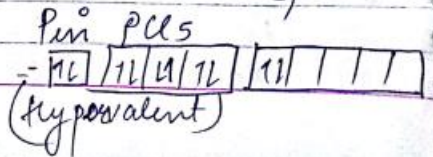 P in PCl5
= [1L] [1L|1L|1L] [1L| | | | ]
(Hypervalent)